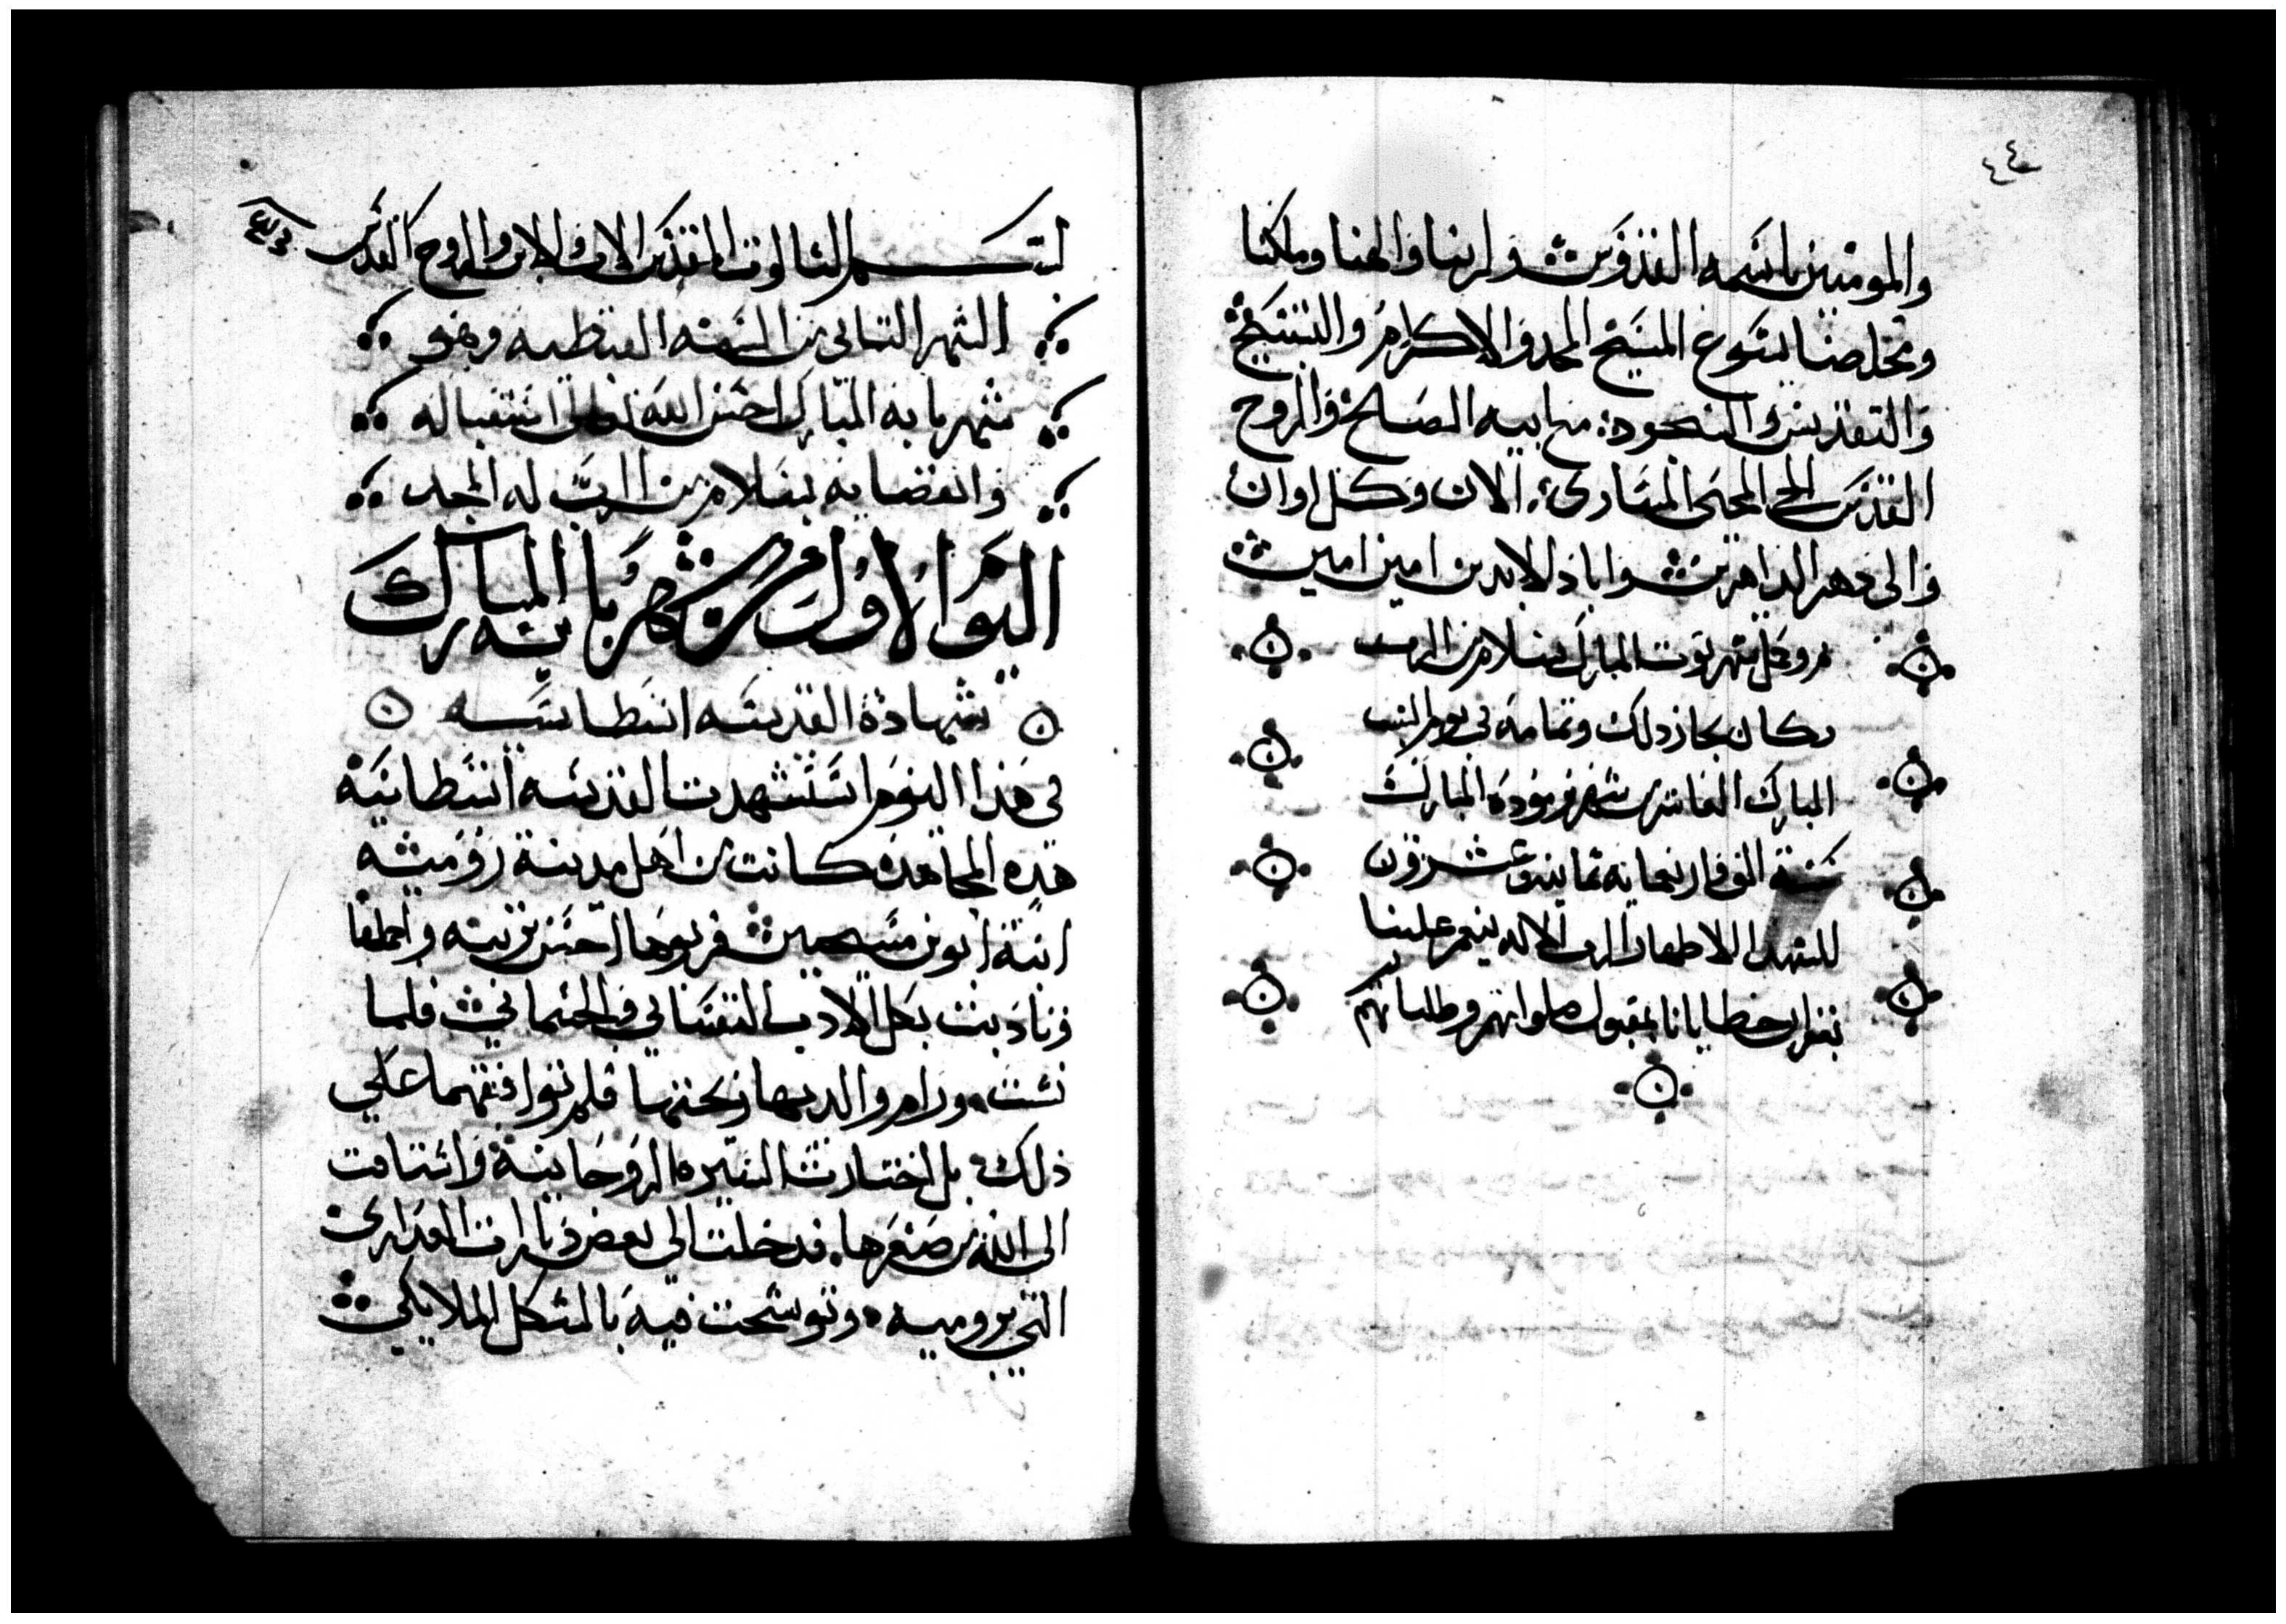 ٤٤
والمومنين باسمه القدوس ولربنا والهنا وملكنا
ومخلصنا يسوع المسيح المجد والاكرام والتسبيح
والتقديس والسجود مع ابيه الصالح والروح
القدس المحي المساوي الان وكل اوان
والى دهر الداهرين واباد الابدين امين امين
شهر توت المبارك بسلام من الرب
وكان نجاز ذلك وتمامه في يوم السبت
المبارك العاشر من شهر برموده المبارك
سنة الف واربعمايه ثمانيه وعشرون
للشهدا الاطهار الرب الاله ينعم علينا
بغفران خطايانا بقبول صلواتهم وطلباتهم
بسم الثالوت المقدس الاب والابن والروح القدس
الشهر التاني من السنه القبطيه وهو
شهر بابه المبارك احسن الله تعالى استقباله
وانقضايه بسلام من الرب له المجد
اليوم الاول من شهر بابه المبارك
شهادة القديسه انسطاسيه
في هذا اليوم استشهدت القديسه انسطاسيه
هده المجاهده كانت من اهل مدينة روميه
ابنة ابوين مسيحيين فربوها احسن تربيه
وتادبت بكل الادب النفساني والجسماني فلما
نشت ورام والديها زيجتها فلم توافقهما علي
ذلك بل اختارت السيره الروحانية واشتاقت
الى الله من صغرها فدخلت الى بعض ديارات العدارى
التي برومية وتوشحت فيه بالشكل الملايكي